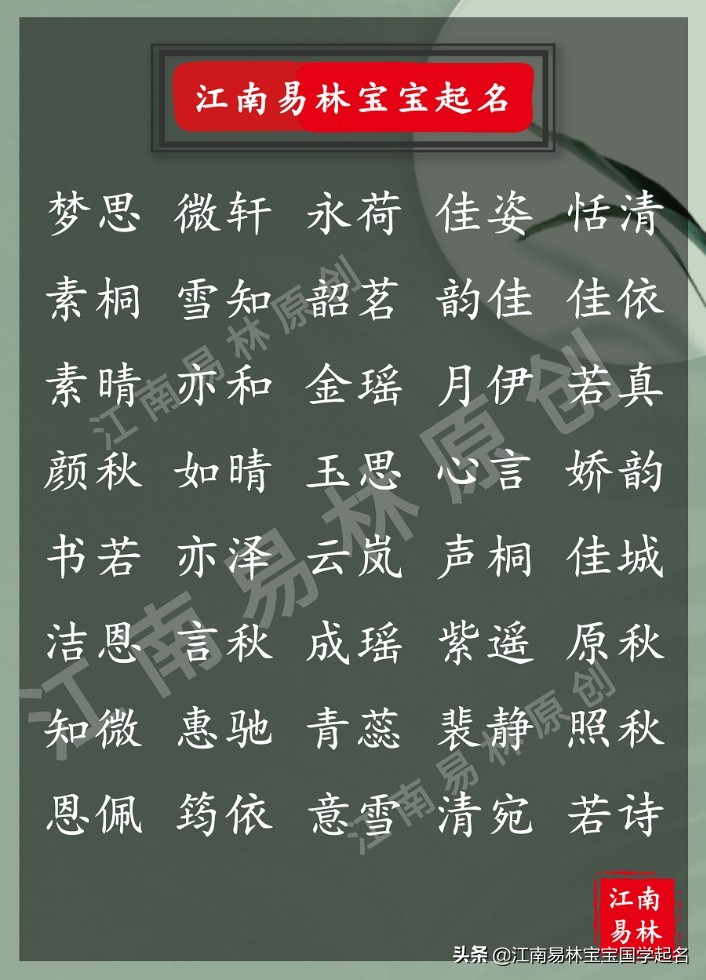 江南易林宝宝起名
梦思 微轩 永荷 佳姿 恬清
素桐 雪知 韶茗 韵佳 佳依
素晴 亦和 金瑶 月伊 若真
颜秋 如晴 玉思 心言 娇韵
书若 亦泽 云岚 声桐 佳城
洁恩 言秋 成瑶 紫遥 原秋
知微 惠驰 青蕊 裴静 照秋
恩佩 筠依 意雪 清宛 若诗
江南易林原创
江南易林原创
江南易林原创
江南
易林
头条 @江南易林宝宝国学起名